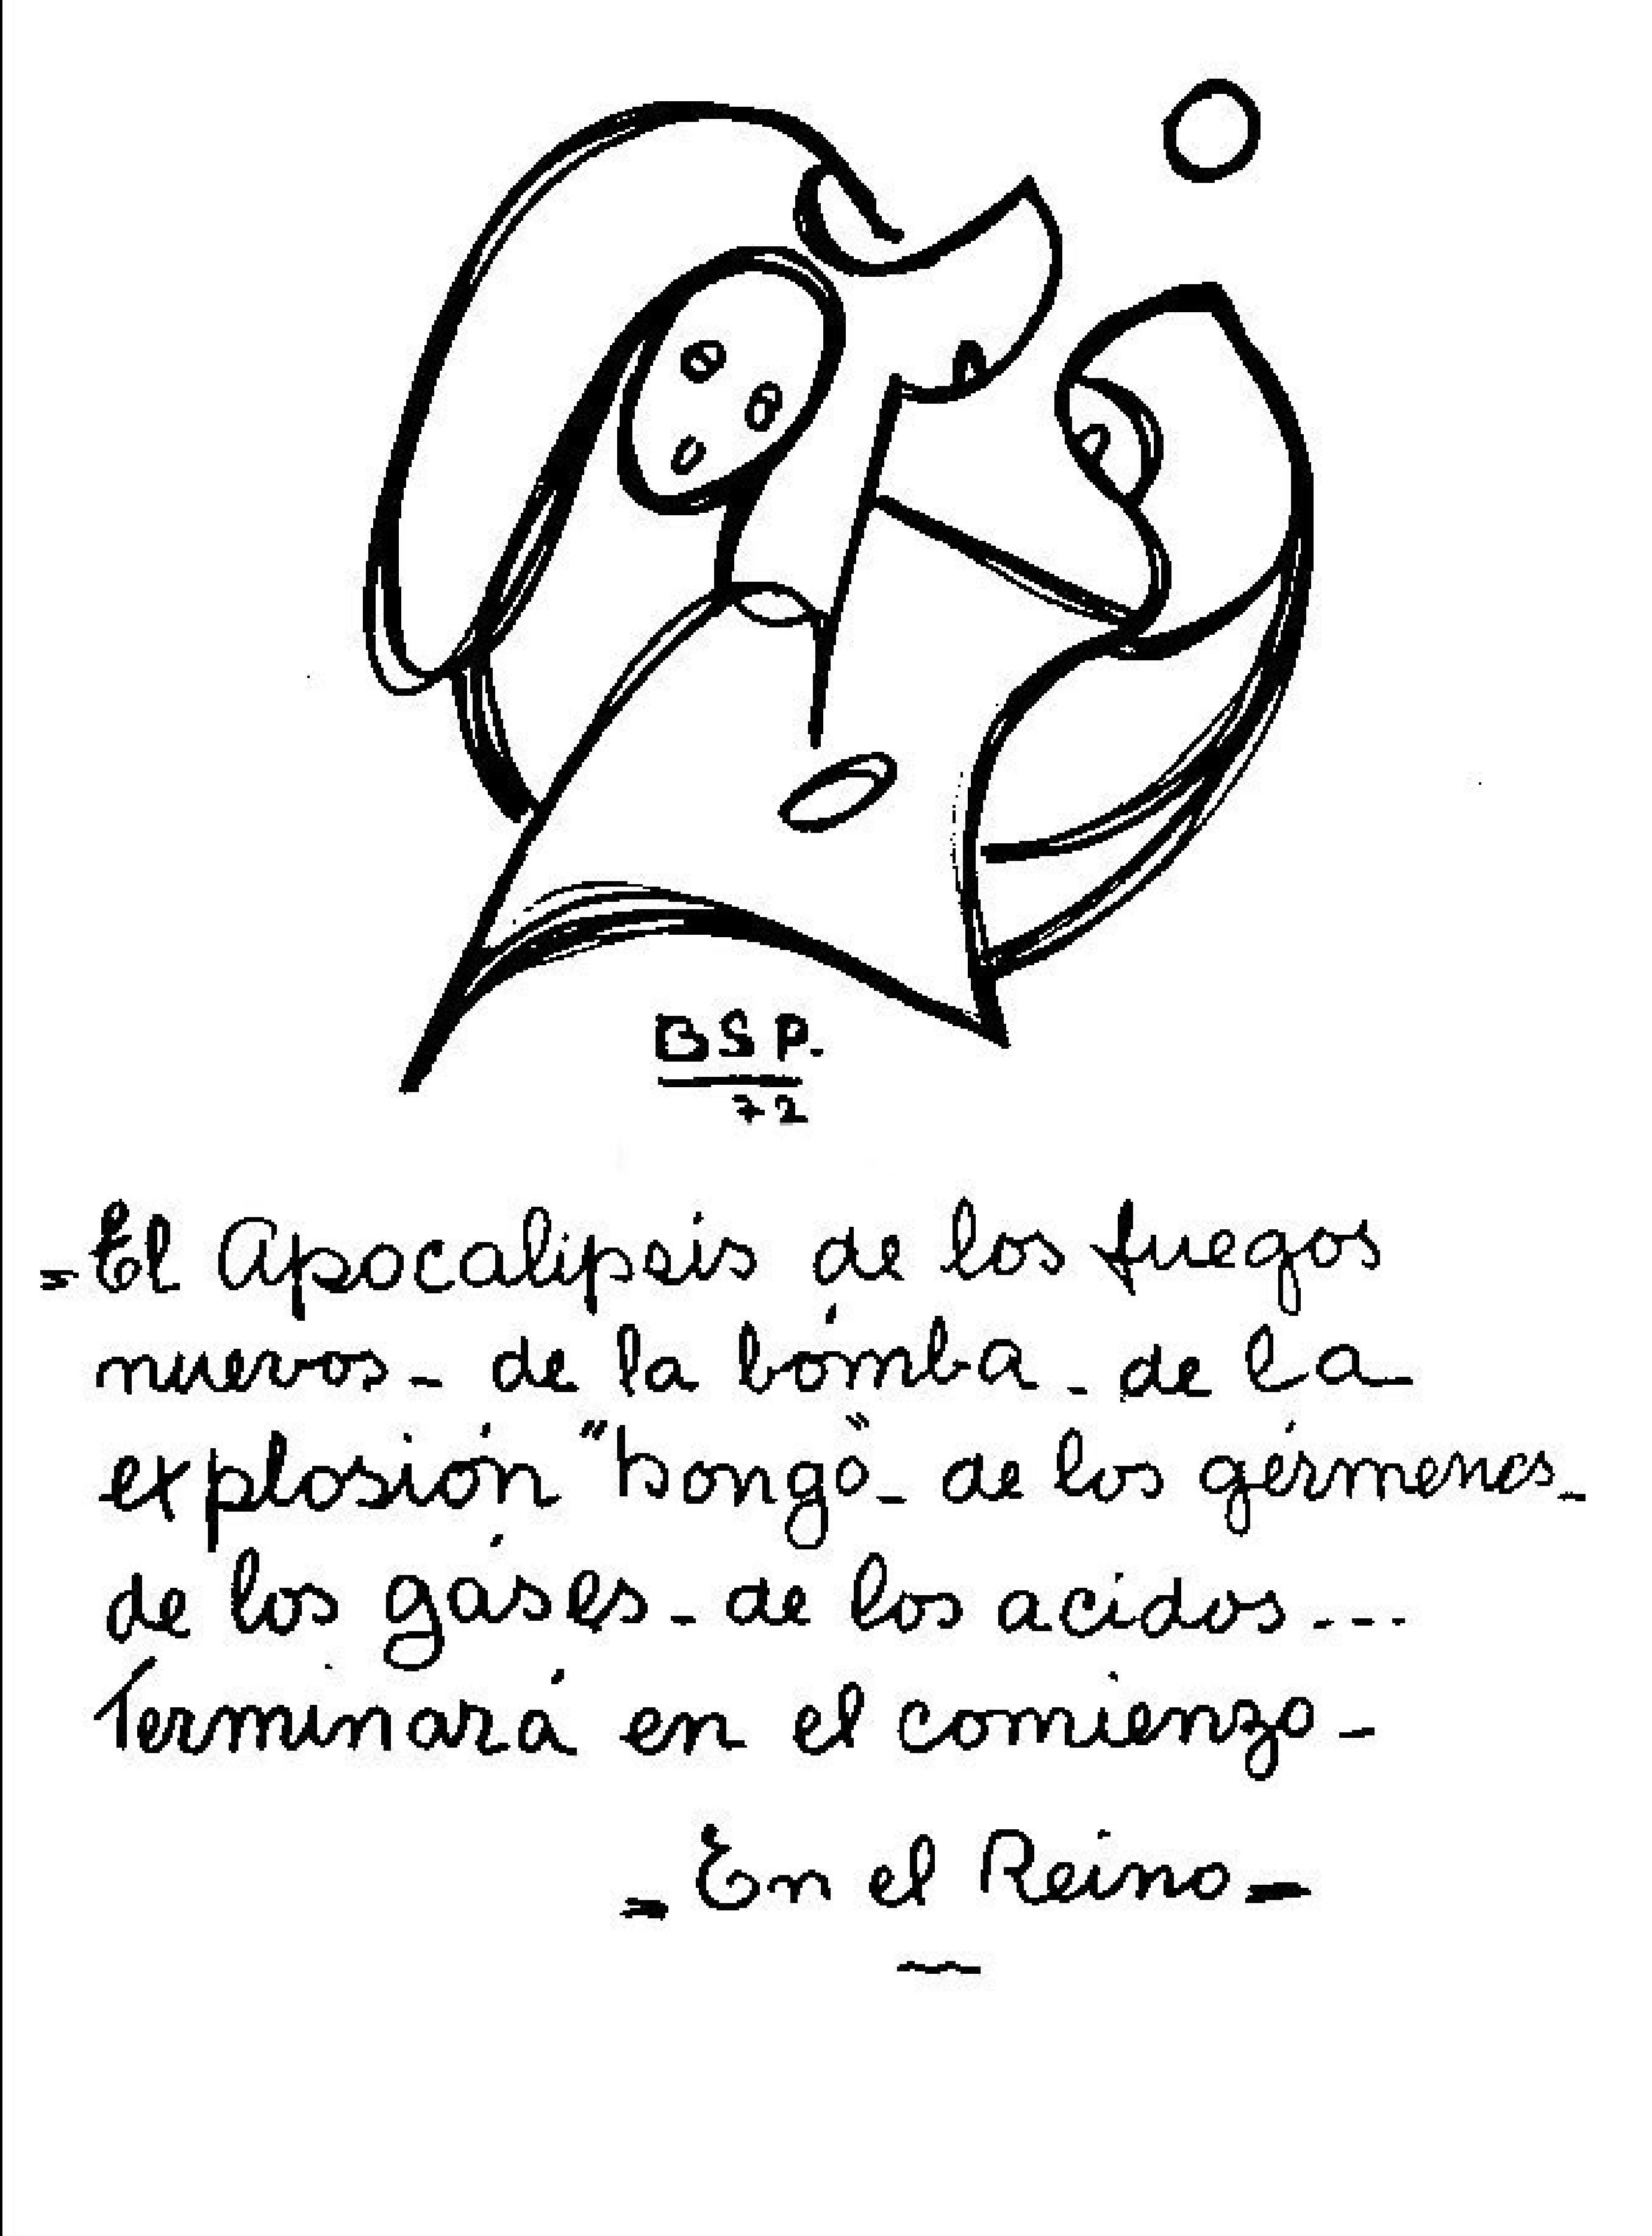 BSP.
72
= El Apocalipsis de los fuegos
nuevos - de la bómba - de la
explosión "hongo" - de los gérmenes -
de los gáses - de los acidos ...
Terminará en el comienzo -
= En el Reino =